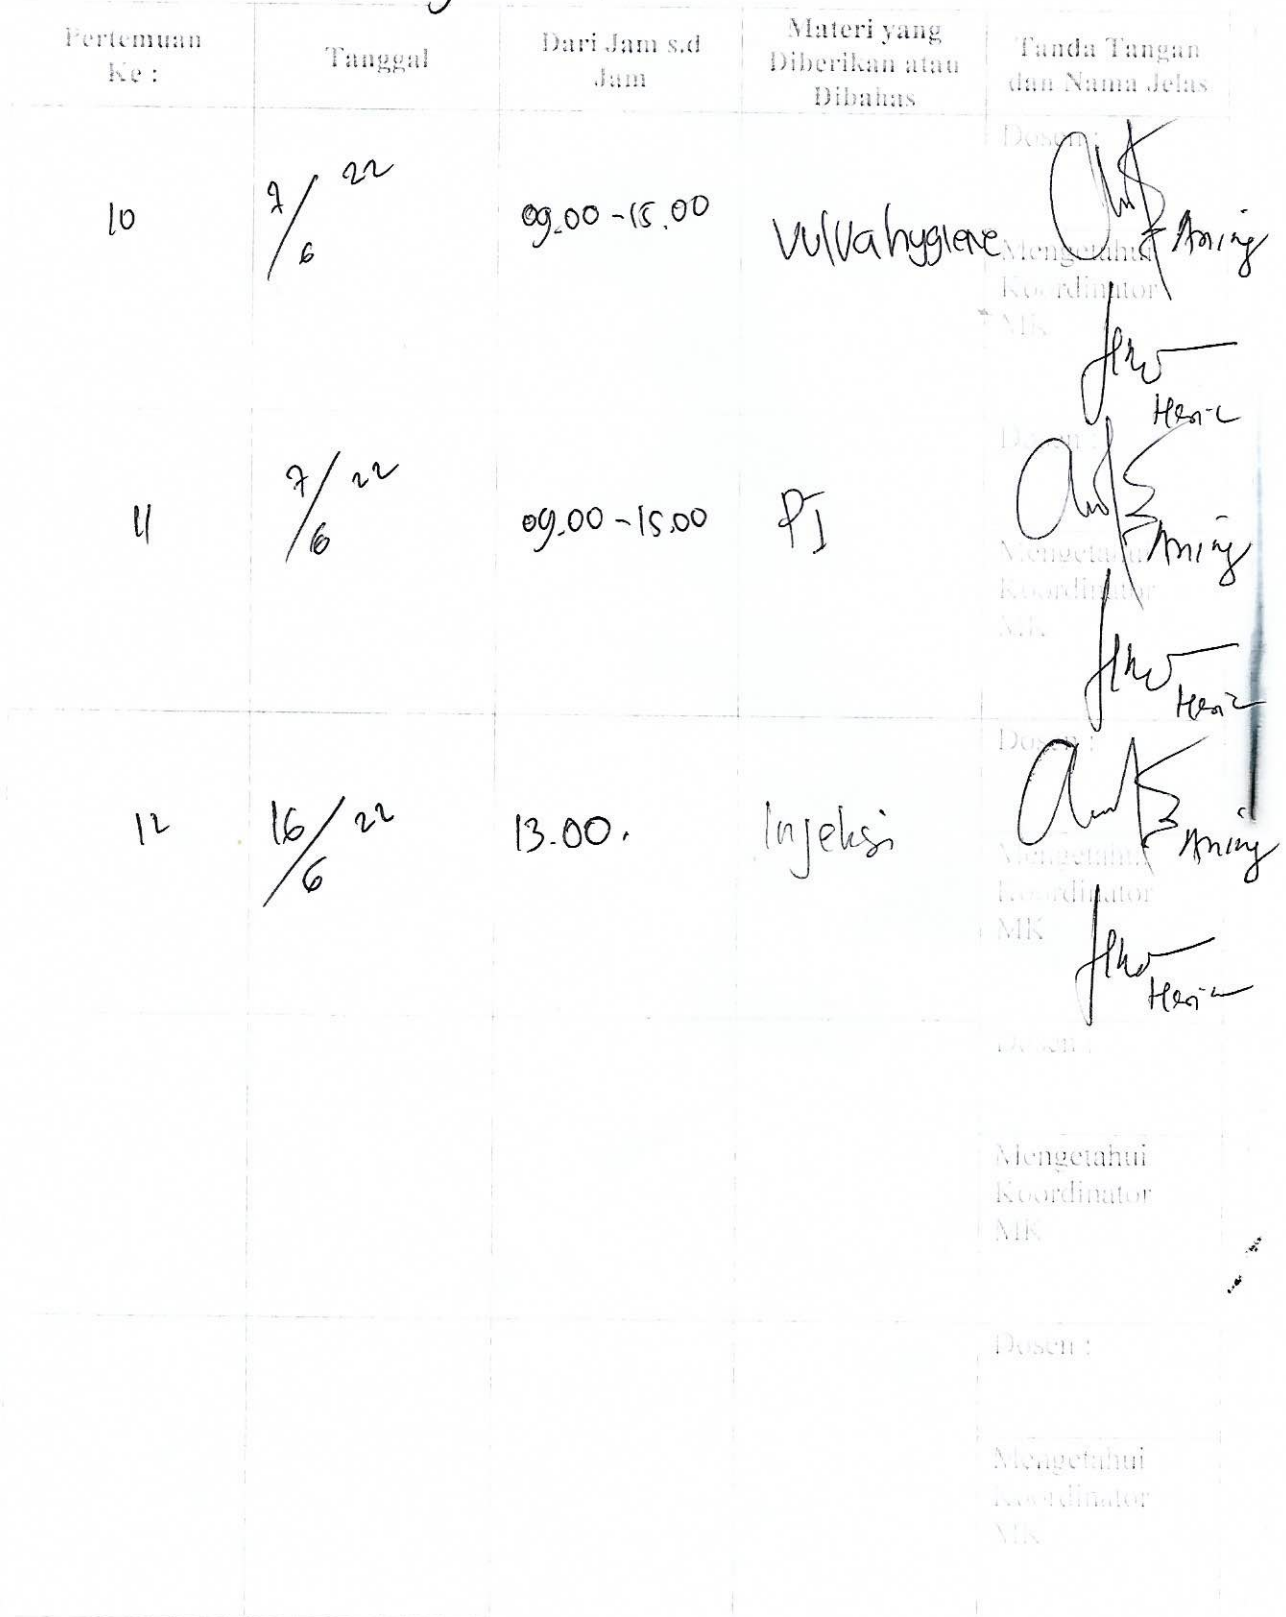 Pertemuan
Ke :
Tanggal
Dari Jam s.d
Jam
Materi yang
Diberikan atau
Dibahas
Tanda Tangan
dan Nama Jelas
10
7/6 22
09.00-15.00
Vulva hygiene
Dosen :
Aning
Mengetahui
Koordinator
MK
11
7/6 22
09.00-15.00
PI
Dosen :
Aning
Mengetahui
Koordinator
MK
12
16/6 22
13.00.
Injeksi
Dosen :
Aning
Mengetahui
Koordinator
MK
Dosen :
Mengetahui
Koordinator
MK
Dosen :
Mengetahui
Koordinator
MK